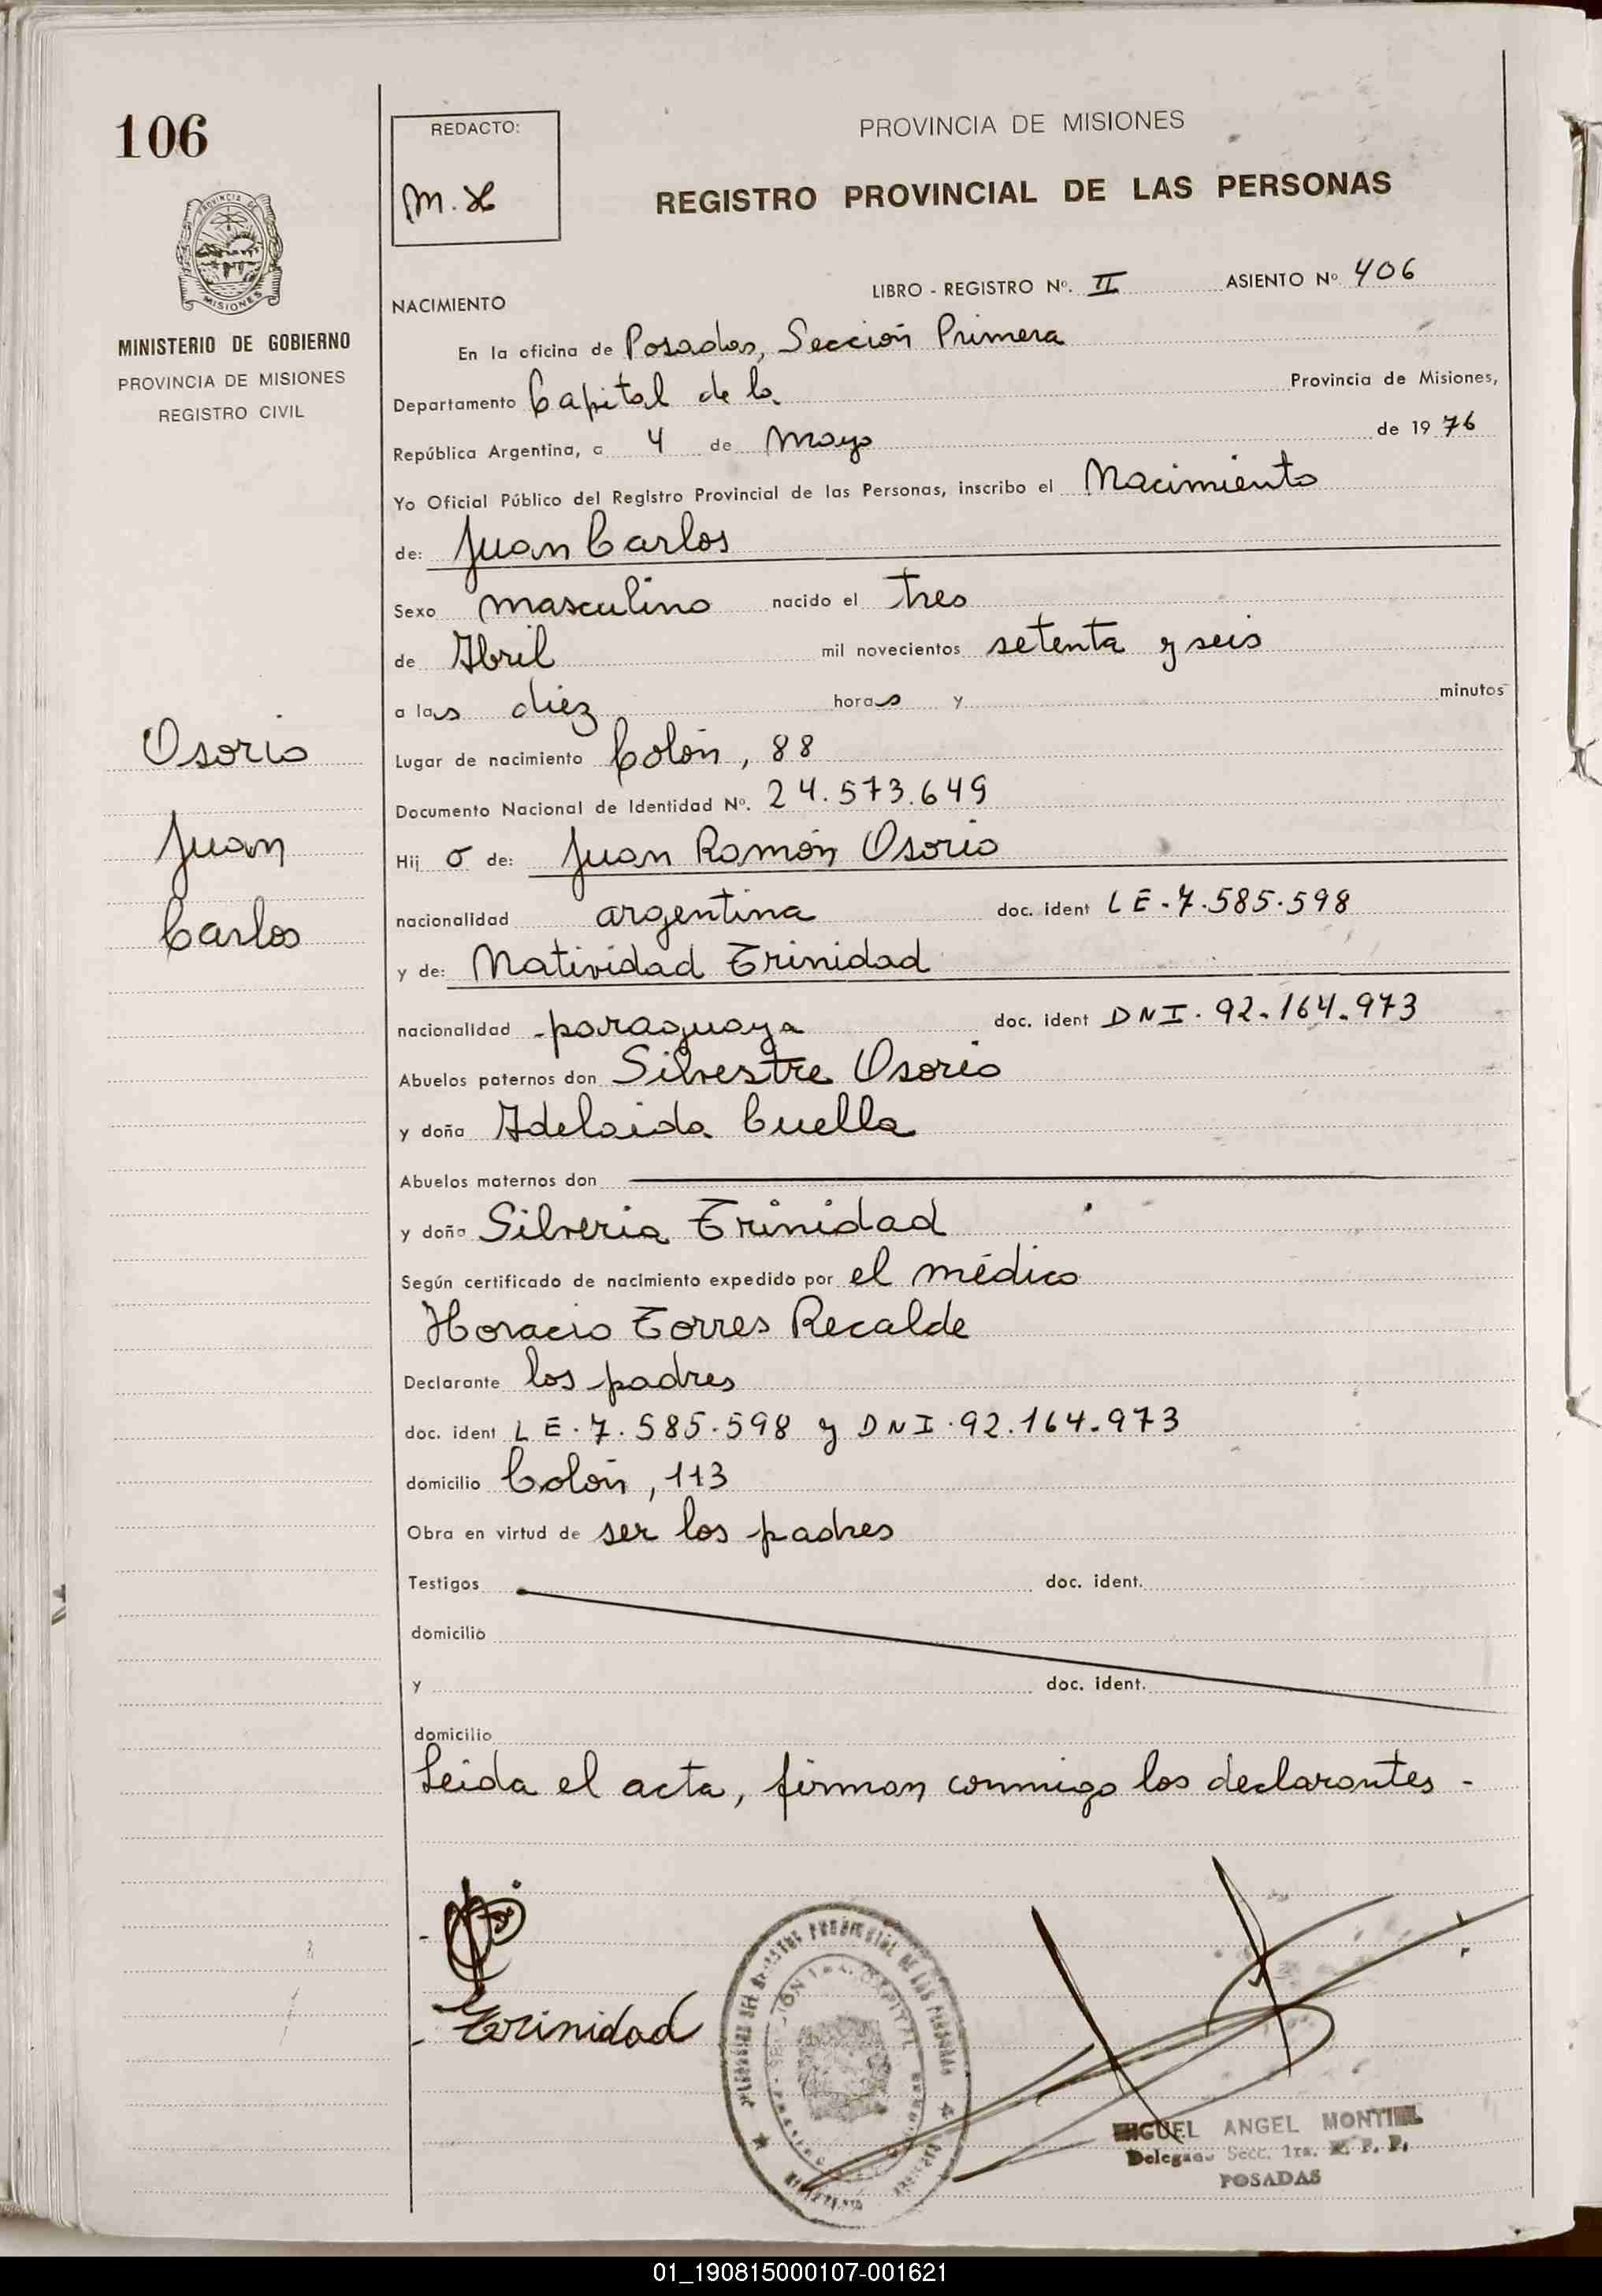 106
REDACTO:
M.
PROVINCIA DE MISIONES
REGISTRO PROVINCIAL DE LAS PERSONAS
PROVINCIA DE
MISIONES
MINISTERIO DE GOBIERNO
PROVINCIA DE MISIONES
REGISTRO CIVIL
NACIMIENTO LIBRO - REGISTRO Nº. II ASIENTO Nº 406
En la oficina de Posadas, Sección Primera
Departamento Capital de la Provincia de Misiones,
República Argentina, a 4 de Mayo de 1976
Yo Oficial Público del Registro Provincial de las Personas, inscribo el Nacimiento
de: Juan Carlos
Sexo masculino nacido el tres
de Abril mil novecientos setenta y seis
a las diez horas y minutos
Osorio
Juan
Carlos
Lugar de nacimiento Colón, 88
Documento Nacional de Identidad Nº. 24.573.649
Hijo de: Juan Ramón Osorio
nacionalidad argentina doc. ident LE-7.585.598
y de: Natividad Trinidad
nacionalidad paraguaya doc. ident DNI. 92.164.973
Abuelos paternos don Silvestre Osorio
y doña Adelaida Cuella
Abuelos maternos don
y doña Silveria Trinidad
Según certificado de nacimiento expedido por el médico
Horacio Torres Recalde
Declarante los padres
doc. ident LE.7.585.598 y DNI.92.164.973
domicilio Colón, 113
Obra en virtud de ser los padres
Testigos doc. ident.
domicilio
y doc. ident.
domicilio
Leida el acta, firman conmigo los declarantes -
Trinidad
MIGUEL ANGEL MONTIEL
Delegado Secc. 1ra. R. P. P.
POSADAS
01_190815000107-001621